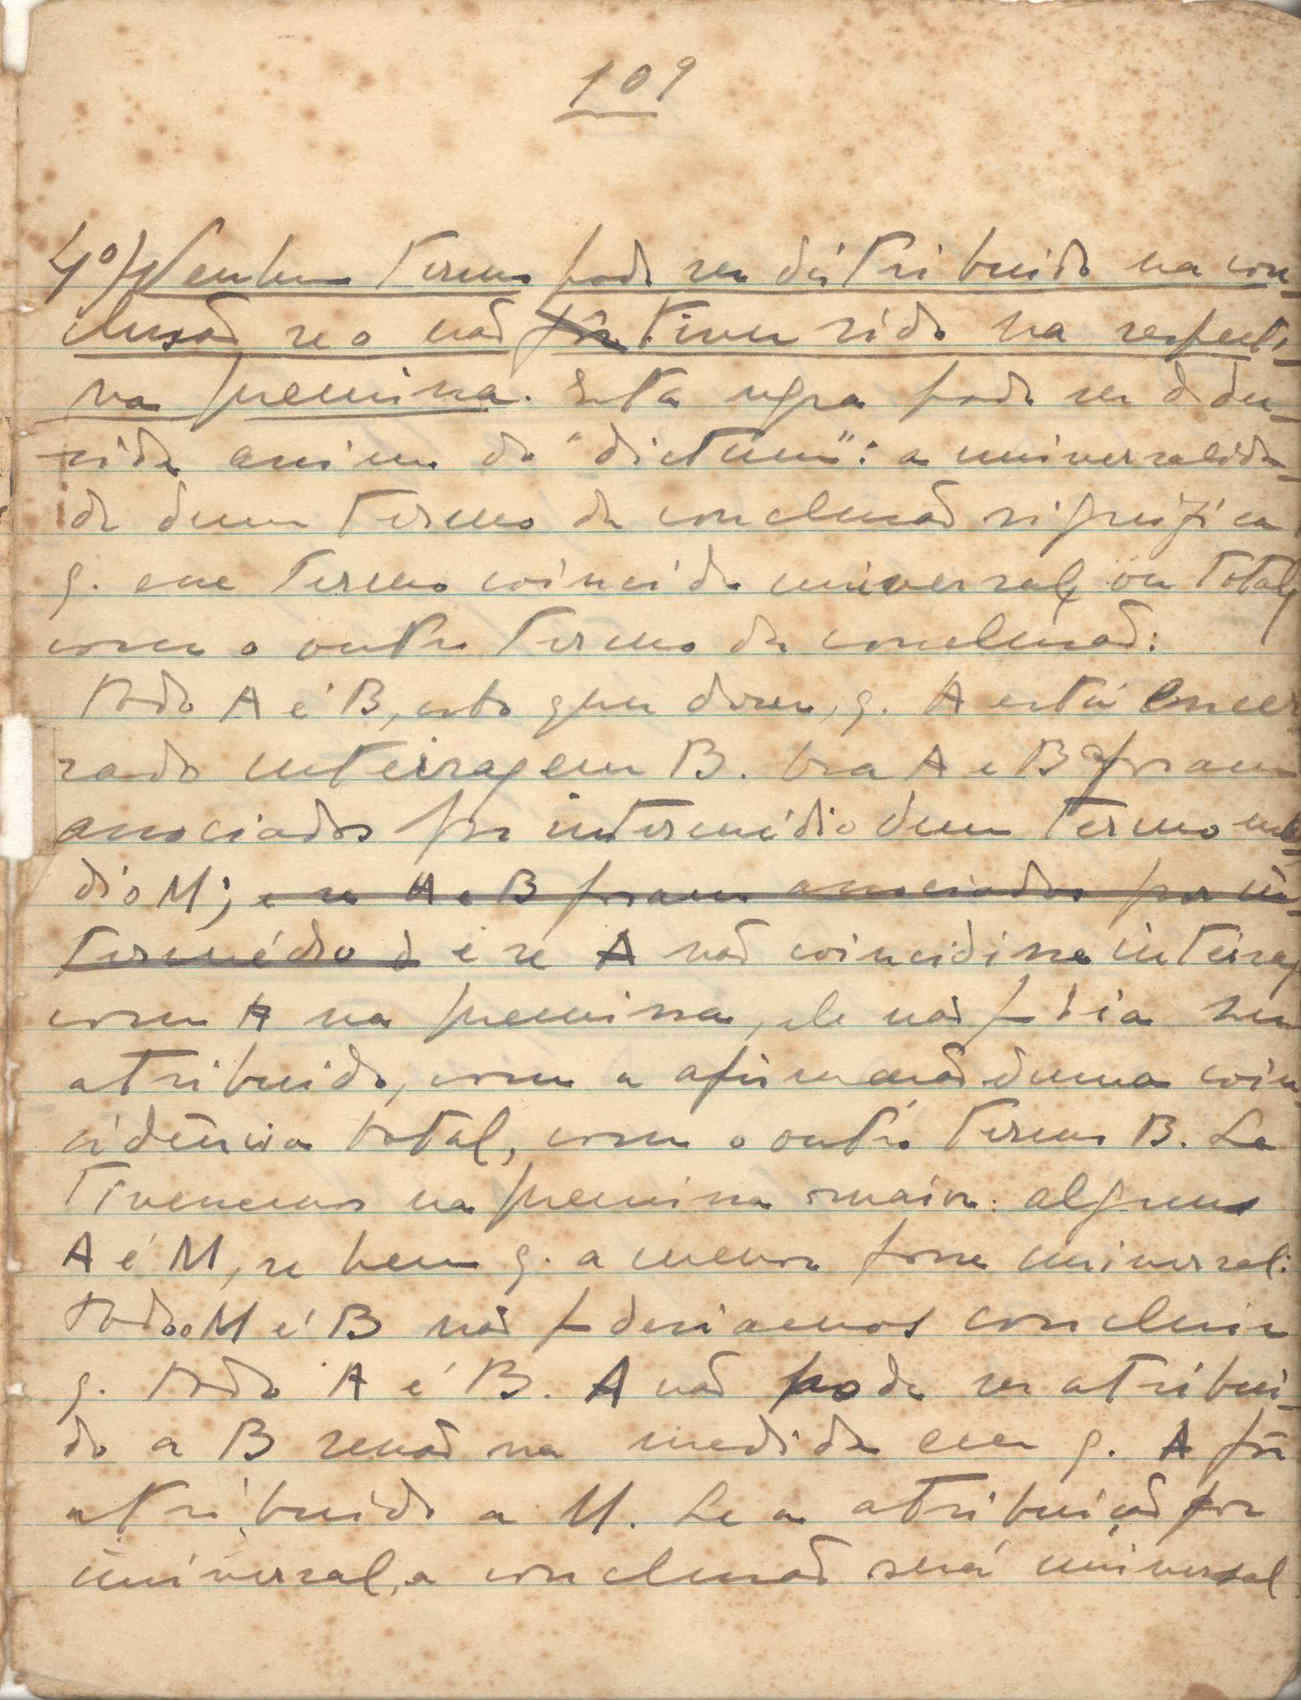 109
4º) Nenhum termo pode ser distribuido na con-
clusão se o não fôr tiver sido na respecti-
va premissa. Esta regra pode ser dedu-
zida assim do "dictum": a universalida-
de dum termo da conclusão significa
q. esse termo coincide universalͭͤ ou total
com o outro termo da conclusão:
Todo A é B, isto quer dizer, q. A está encer
rado inteirag em B. Ora A e B foram
associados por intermédio dum termo mé-
dio M; e se A e B foram associados por in-
termédio d e se A não coincidisse inteirag
com A na premissa, ele não podia ser
atribuido, com a afirmação duma coin
cidência total, com o outro termo B. Se
tivermos na premissa maior: algum
A é M, se bem q. a menor fosse universal:
Todo o M é B não poderiamos concluir
q. todo A é B. A não pode ser atribui-
do a B senão na medida em q. A fôr
atribuido a M. Se a atribuição for
universal, a conclusão será universal